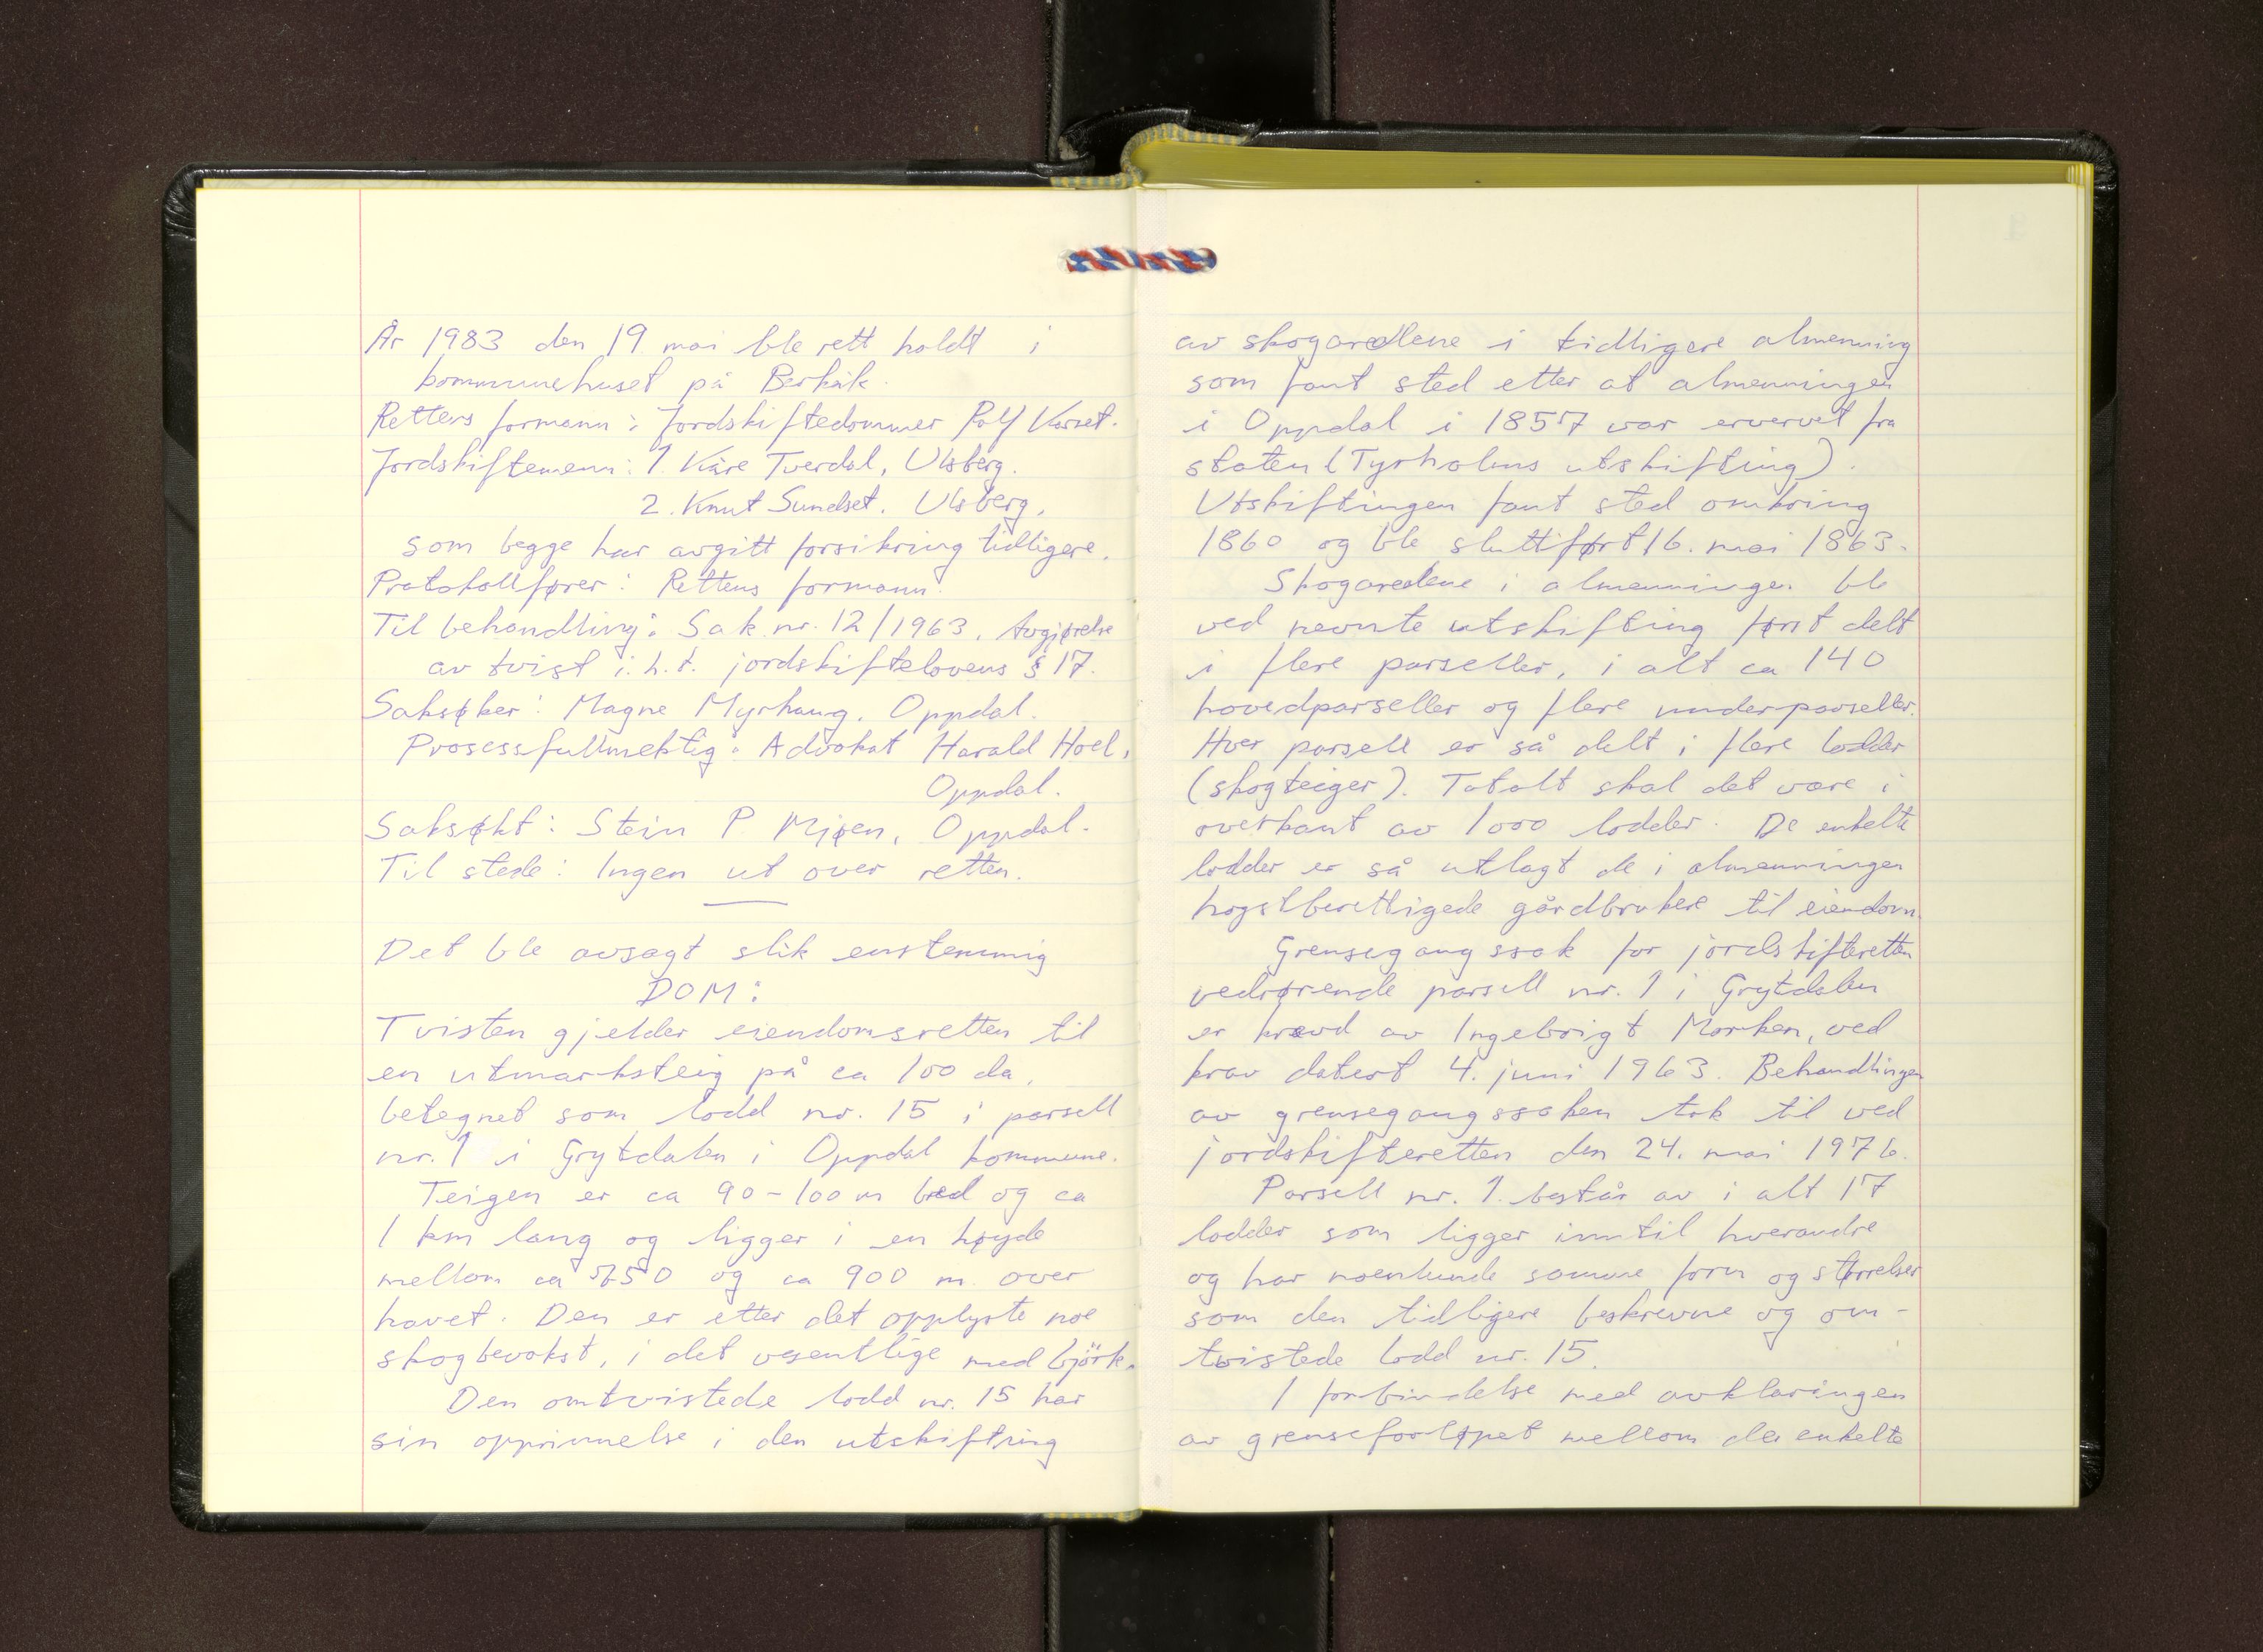 År 1983 den 19. mai ble rett holdt i
kommunehuset på Berkåk.
Rettens formann: Jordskiftedommer Rolf Karset.
Jordskiftemenn: 1. Kåre Tverdal, Ulsberg.
2. Knut Sundset. Ulsberg.
som begge har avgitt forsikring tidligere.
Protokollfører: Rettens formann.
Til behandling: Sak nr. 12/1963. Avgjørelse
av tvist i.h.t. jordskiftelovens § 17.
Saksøker: Magne Myrhaug. Oppdal.
Prosessfullmektig: Advokat Harald Hoel,
Oppdal.
Saksøkt: Stein P. Mjøen, Oppdal.
Til stede: Ingen ut over retten.
Det ble avsagt slik enstemmig
DOM:
Tvisten gjelder eiendomsretten til
en utmarksteig på ca 100 da,
betegnet som lodd nr. 15 i parsell
nr. 1 i Grytdalen i Oppdal kommune.
Teigen er ca 90-100 m bred og ca
1 km lang og ligger i en høyde
mellom ca og ca 900 m. over
havet. Den er etter det opplyste noe
skogbevokst, i det vesentlige med björk.
Den omtvistede lodd nr. 15 har
sin opprinnelse i den utskiftning
av skogarealene i tidligere almenning
som fant sted etter at almenningen
i Oppdal i 1857 var ervervet fra
staten (Tyrholms utskifting).
Utskiftingen fant sted omkring
1860 og ble sluttført 16. mai 1863.
Skogarealene i almenningen ble
ved nevnte utskifting først delt
i flere parseller, i alt ca 140
hovedparseller og flere underparseller.
Hver parsell er så delt i flere lodder
(skogteiger). Totalt skal det være i
overkant av 1000 lodder. De enkelte
lodder er så utlagt de i almenningen
hogstberettigede gårdbrukere til eiendom.
Grensegangssak for jordskifteretten
vedrørende parsell nr. 1 i Grytdalen
er krevd av Ingebrigt Morken, ved
krav datert 4. juni 1963. Behandlingen
av grensegangssaken tok til ved
jordskifteretten den 24. mai 1976.
Parsell nr. 1 består av i alt 17
lodder som ligger inntil hverandre
og har noenlunde samme form og størrelser
som den tidligere beskrevne og om-
tvistede lodd nr. 15.
I forbindelse med avklaringen
av grenseforløpet mellom de enkelte